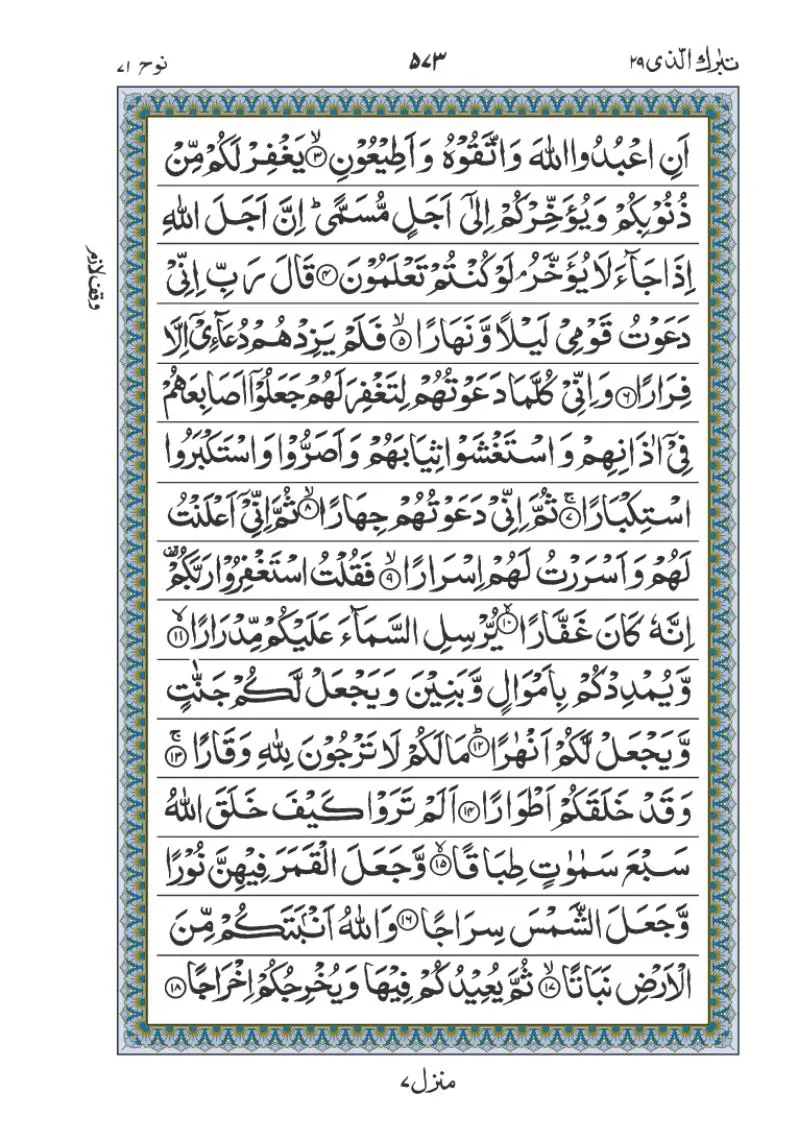 تبٰرك الّذی ۲۹ ۵۷۳ نوح ۷۱
اَنِ اعْبُدُوا اللّٰهَ وَاتَّقُوْهُ وَاَطِیْعُوْنِ ۙ﴿۳﴾ یَغْفِرْ لَكُمْ مِّنْ
ذُنُوْبِكُمْ وَیُؤَخِّرْكُمْ اِلٰۤی اَجَلٍ مُّسَمًّی ؕ اِنَّ اَجَلَ اللّٰهِ
اِذَا جَآءَ لَا یُؤَخَّرُ ۘ لَوْ كُنْتُمْ تَعْلَمُوْنَ ﴿۴﴾ قَالَ رَبِّ اِنِّیْ
وقف لازم
دَعَوْتُ قَوْمِیْ لَیْلًا وَّنَهَارًا ۙ﴿۵﴾ فَلَمْ یَزِدْهُمْ دُعَآءِیْۤ اِلَّا
فِرَارًا ﴿۶﴾ وَاِنِّیْ كُلَّمَا دَعَوْتُهُمْ لِتَغْفِرَ لَهُمْ جَعَلُوْۤا اَصَابِعَهُمْ
فِیْۤ اٰذَانِهِمْ وَاسْتَغْشَوْا ثِیَابَهُمْ وَاَصَرُّوْا وَاسْتَكْبَرُوا
اسْتِكْبَارًا ۚ﴿۷﴾ ثُمَّ اِنِّیْ دَعَوْتُهُمْ جِهَارًا ۙ﴿۸﴾ ثُمَّ اِنِّیْۤ اَعْلَنْتُ
لَهُمْ وَاَسْرَرْتُ لَهُمْ اِسْرَارًا ۙ﴿۹﴾ فَقُلْتُ اسْتَغْفِرُوْا رَبَّكُمْ
اِنَّهٗ كَانَ غَفَّارًا ۙ﴿۱۰﴾ یُّرْسِلِ السَّمَآءَ عَلَیْكُمْ مِّدْرَارًا ۙ﴿۱۱﴾
وَّیُمْدِدْكُمْ بِاَمْوَالٍ وَّبَنِیْنَ وَیَجْعَلْ لَّكُمْ جَنّٰتٍ
وَّیَجْعَلْ لَّكُمْ اَنْهٰرًا ؕ﴿۱۲﴾ مَا لَكُمْ لَا تَرْجُوْنَ لِلّٰهِ وَقَارًا ۚ﴿۱۳﴾
وَقَدْ خَلَقَكُمْ اَطْوَارًا ﴿۱۴﴾ اَلَمْ تَرَوْا كَیْفَ خَلَقَ اللّٰهُ
سَبْعَ سَمٰوٰتٍ طِبَاقًا ۙ﴿۱۵﴾ وَّجَعَلَ الْقَمَرَ فِیْهِنَّ نُوْرًا
وَّجَعَلَ الشَّمْسَ سِرَاجًا ﴿۱۶﴾ وَاللّٰهُ اَنْۢبَتَكُمْ مِّنَ
الْاَرْضِ نَبَاتًا ۙ﴿۱۷﴾ ثُمَّ یُعِیْدُكُمْ فِیْهَا وَیُخْرِجُكُمْ اِخْرَاجًا ﴿۱۸﴾
منزل ۷